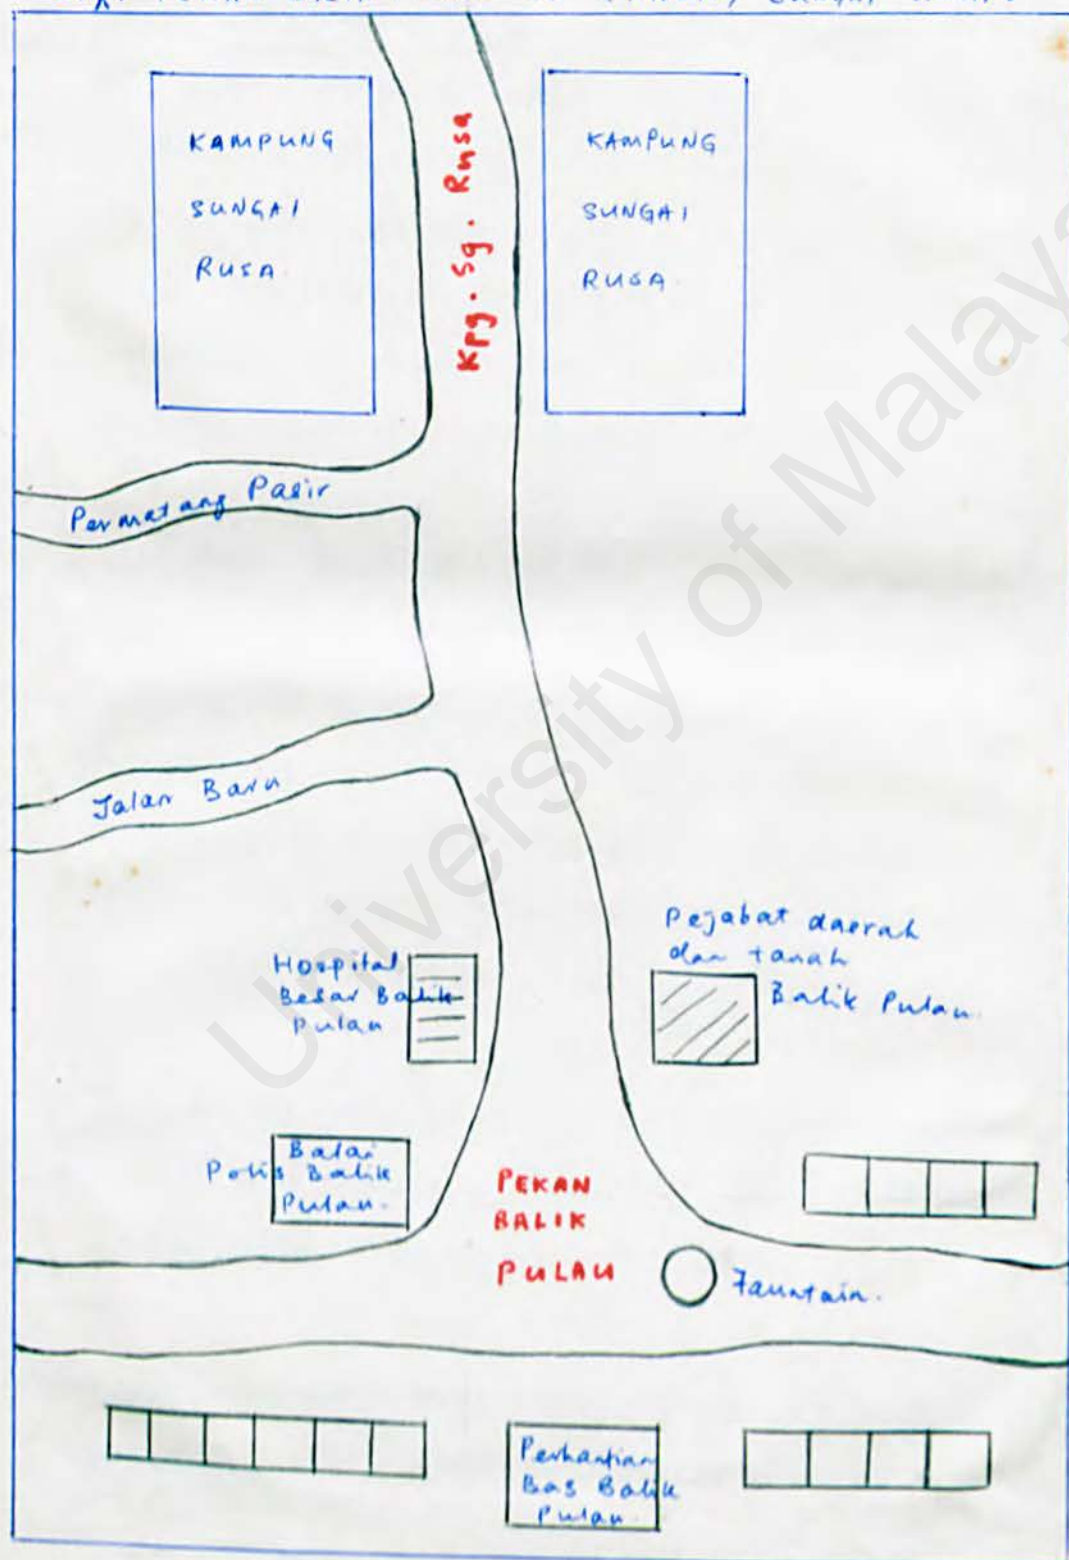 KAMPUNG
SUNGAI
RUSA
Kpg. Sg. Rusa
KAMPUNG
SUNGAI
RUSA
Permatang Pasir
Jalan Baru
Hospital
Besar Balik
Pulau
Pejabat daerah
dan tanah
Balik Pulau
Balai
Polis Balik
Pulau.
PEKAN
BALIK
PULAU
Fauntain.
Perhantian
Bas Balik
Pulau
University of Malaya